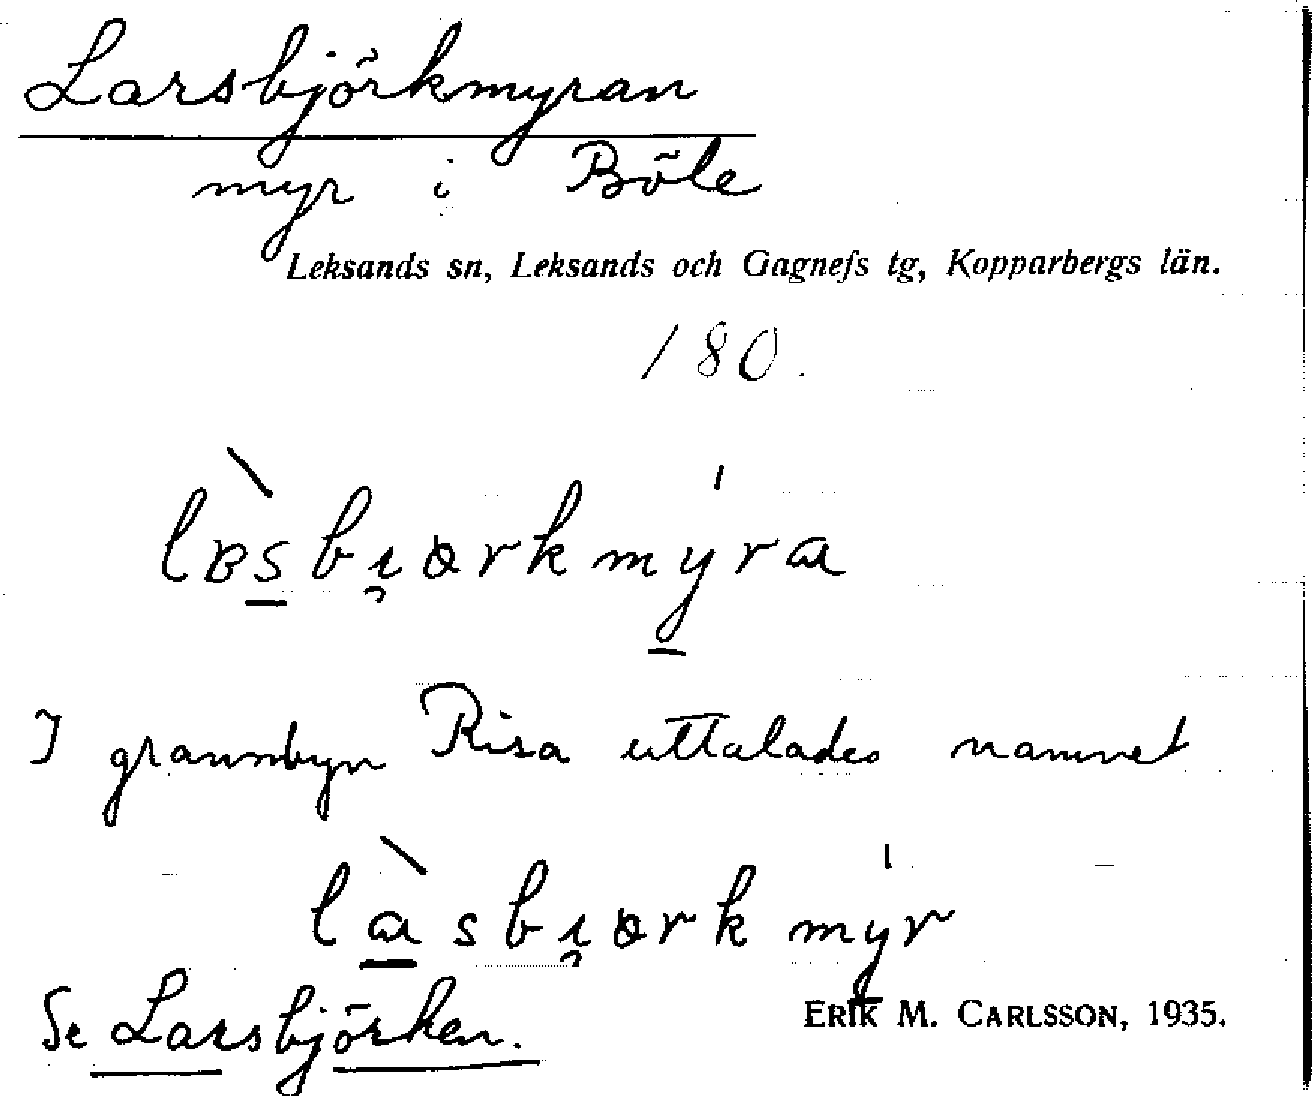 Larsbjörkmyran
myr i Böle
Leksands sn, Leksands och Gagnefs tg, Kopparbergs län.
180.
I grannbyn Risa uttalades namnet
Se Larsbjörken.
ERIK M. CARLSSON, 1935.